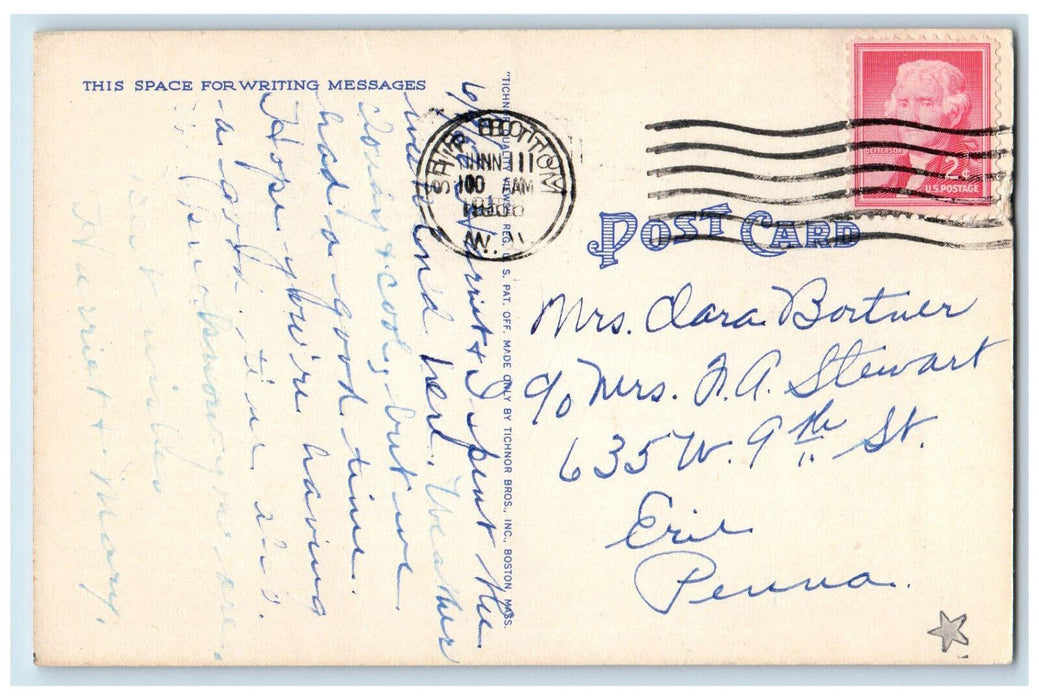 THIS SPACE FOR WRITING MESSAGES
Harriet & I spent the
week end here. Weather
rainy & cool, but we
had a good time.
Hope you're having
a good time also.
wishes
Harriet & Mary.
"TICHNOR QUALITY VIEWS," REG. U. S. PAT. OFF. MADE ONLY BY TICHNOR BROS., INC., BOSTON, MASS.
SHIP BOTTOM
JUN 11
AM
N.J.
JEFFERSON
2¢
U.S. POSTAGE
POST CARD
Mrs. Clara Bortner
c/o Mrs. F. A. Stewart
635 W. 9th St.
Erie
Penna.